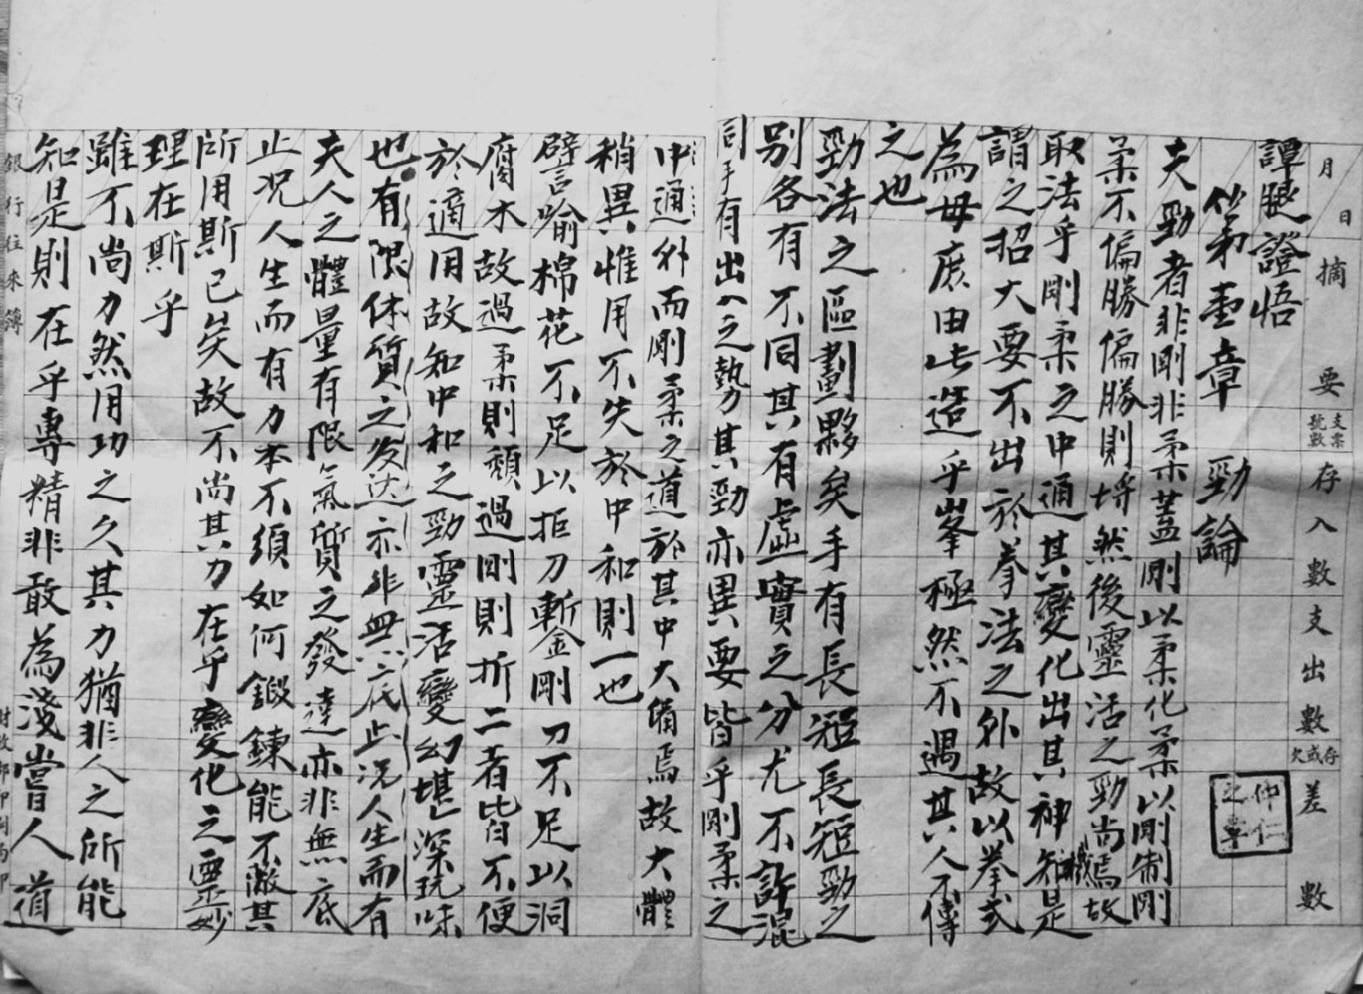 月日 摘要 支票號數 存入數 支出數 存或欠 差數
譚腿證悟
第壹章 勁論
仲仁之章
夫勁者非剛非柔蓋剛以柔化柔以剛制剛
柔不偏勝偏勝則將然後靈活之勁尚焉故
取法乎剛柔之中通其變化出其神機知是
謂之招大要不出於拳法之外故以拳式
為母庶由此造乎峯極然不遇其人不傳
之也
勁法之區劃夥矣手有長短長短勁之
別各有不同其有虛實之分尤不許混
同手有出入之勢其勁亦異要皆乎剛柔之
中通外而剛柔之道於其中大備焉故大體
稍異惟用不失於中和則一也
譬喻棉花不足以拒刀斬金剛刀不足以洞
腐木故過柔則頹過剛則折二者皆不便
於適用故知中和之勁靈活變幻堪深玩味
也有限体質之发达亦非無底止况人生而有
夫人之體量有限氣質之發達亦非無底
止况人生而有力本不須如何鍛鍊能不敵其
所用斯已矣故不尚其力在乎變化之靈妙
理在斯乎
雖不尚力然用功之久其力猶非人之所能
知是則在乎專精非敢為淺嘗人道
銀行往來簿
財政部印刷局印